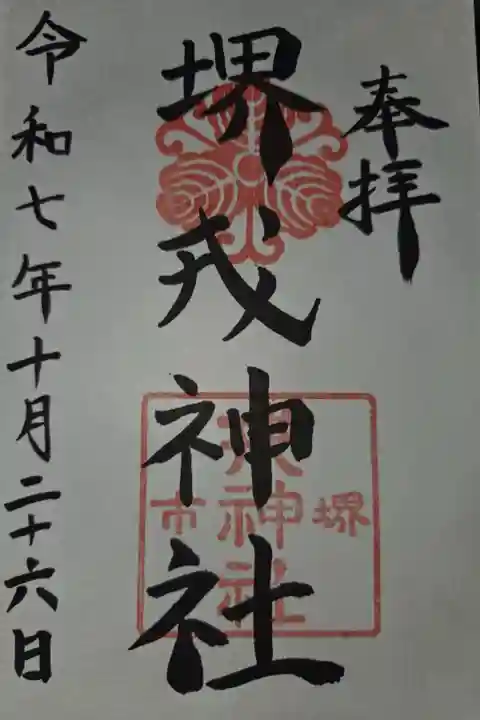 奉拝
堺戎神社
堺
市
神社
令和七年十月二十六日